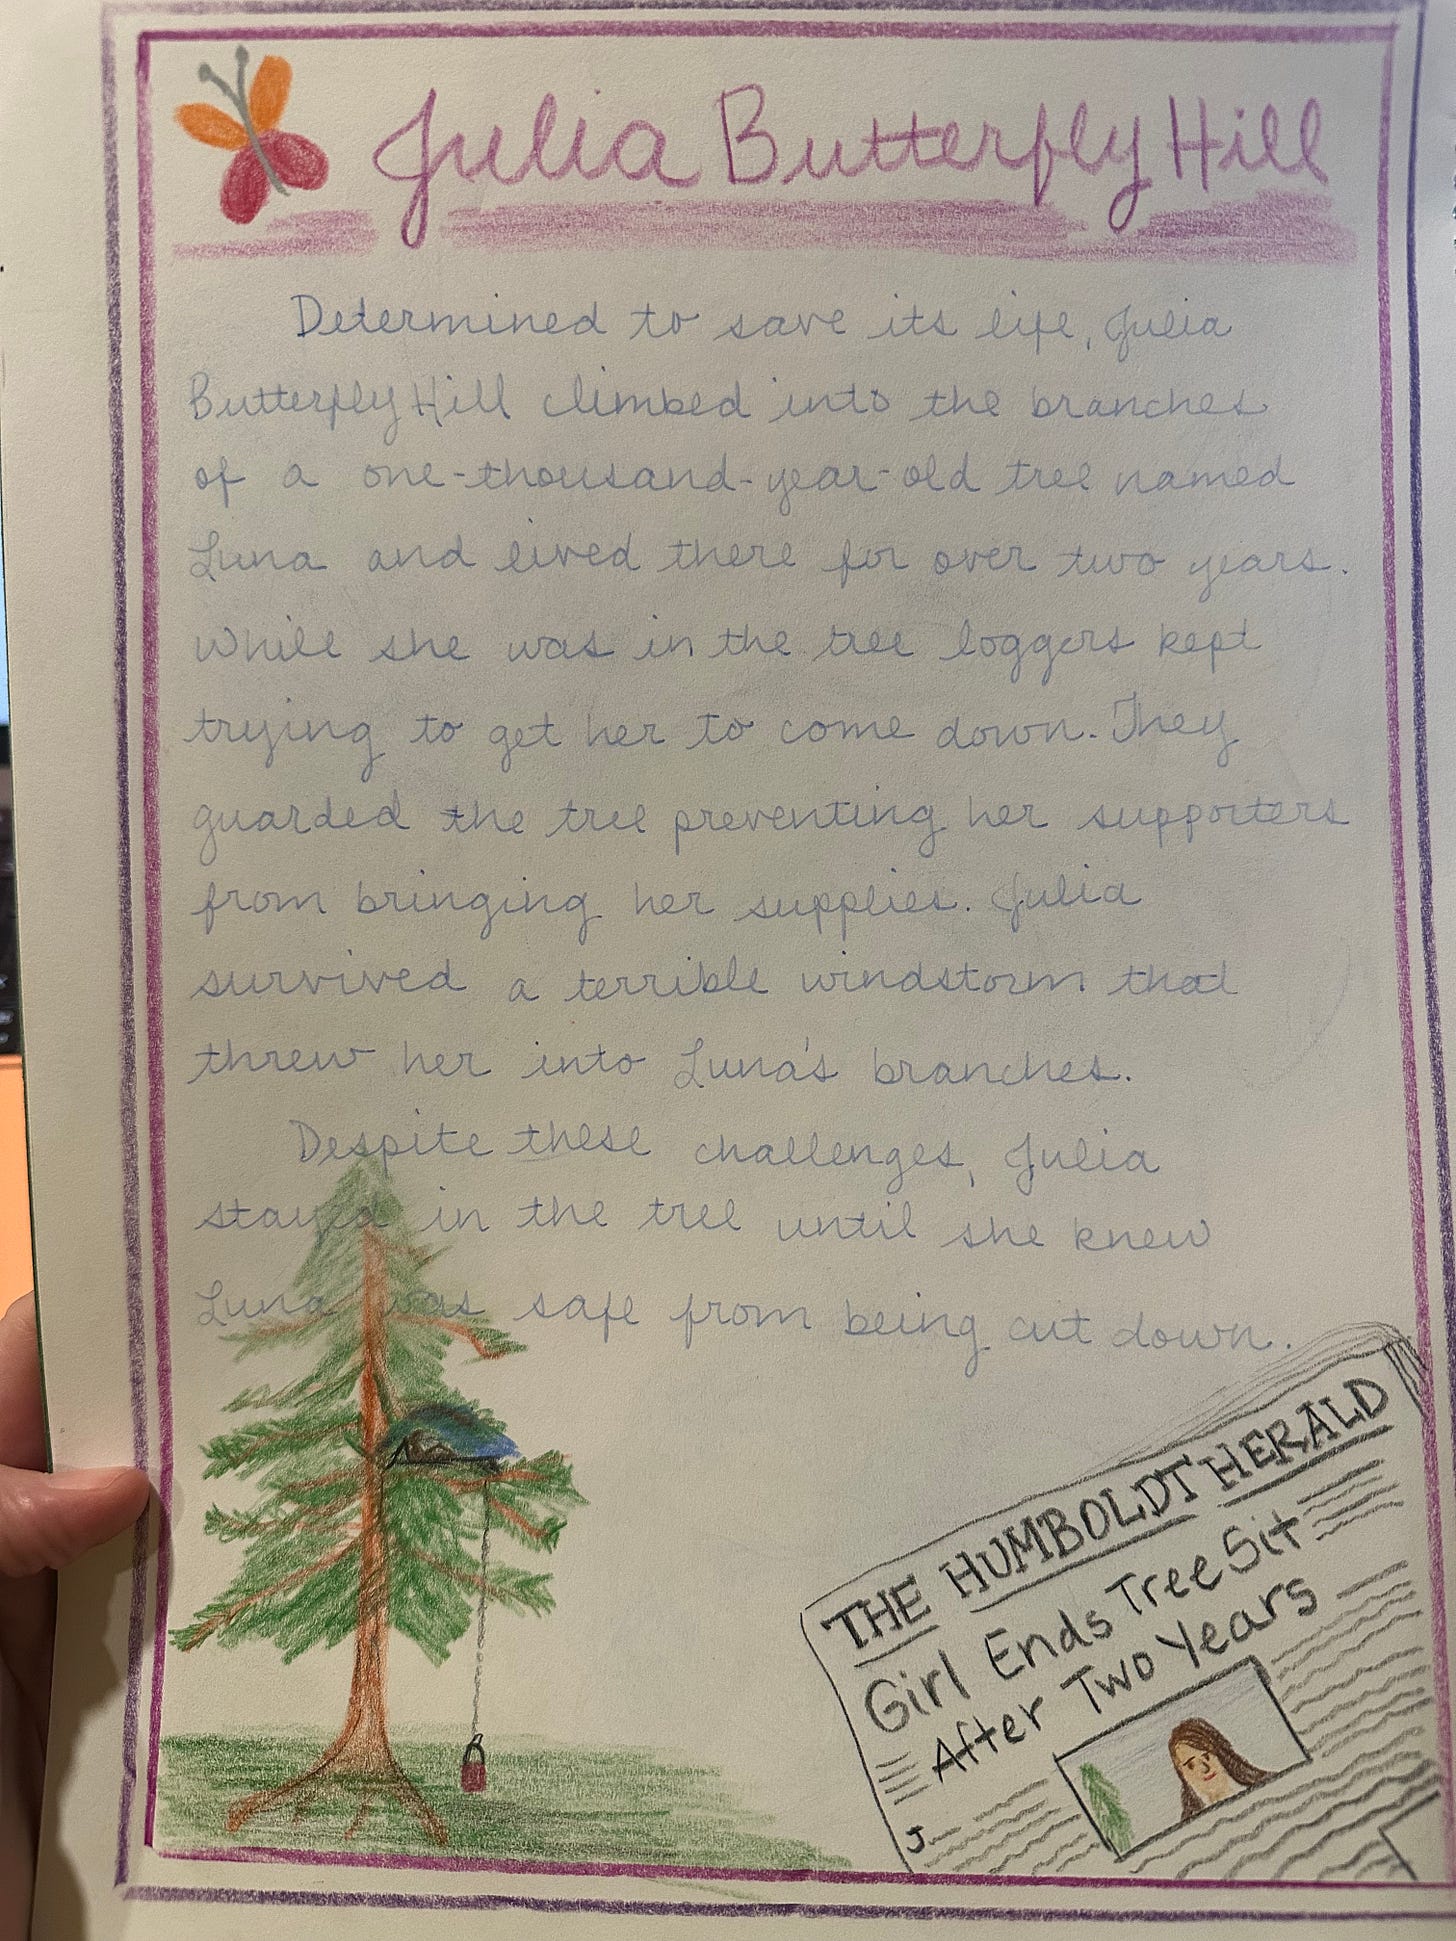 Julia Butterfly Hill
Determined to save its life, Julia
Butterfly Hill climbed into the branches
of a one-thousand-year-old tree named
Luna and lived there for over two years.
While she was in the tree loggers kept
trying to get her to come down. They
guarded the tree preventing her supporters
from bringing her supplies. Julia
survived a terrible windstorm that
threw her into Luna's branches.
Despite these challenges, Julia
stayed in the tree until she knew
Luna was safe from being cut down.
THE HUMBOLDT HERALD
Girl Ends Tree Sit
After Two Years
J